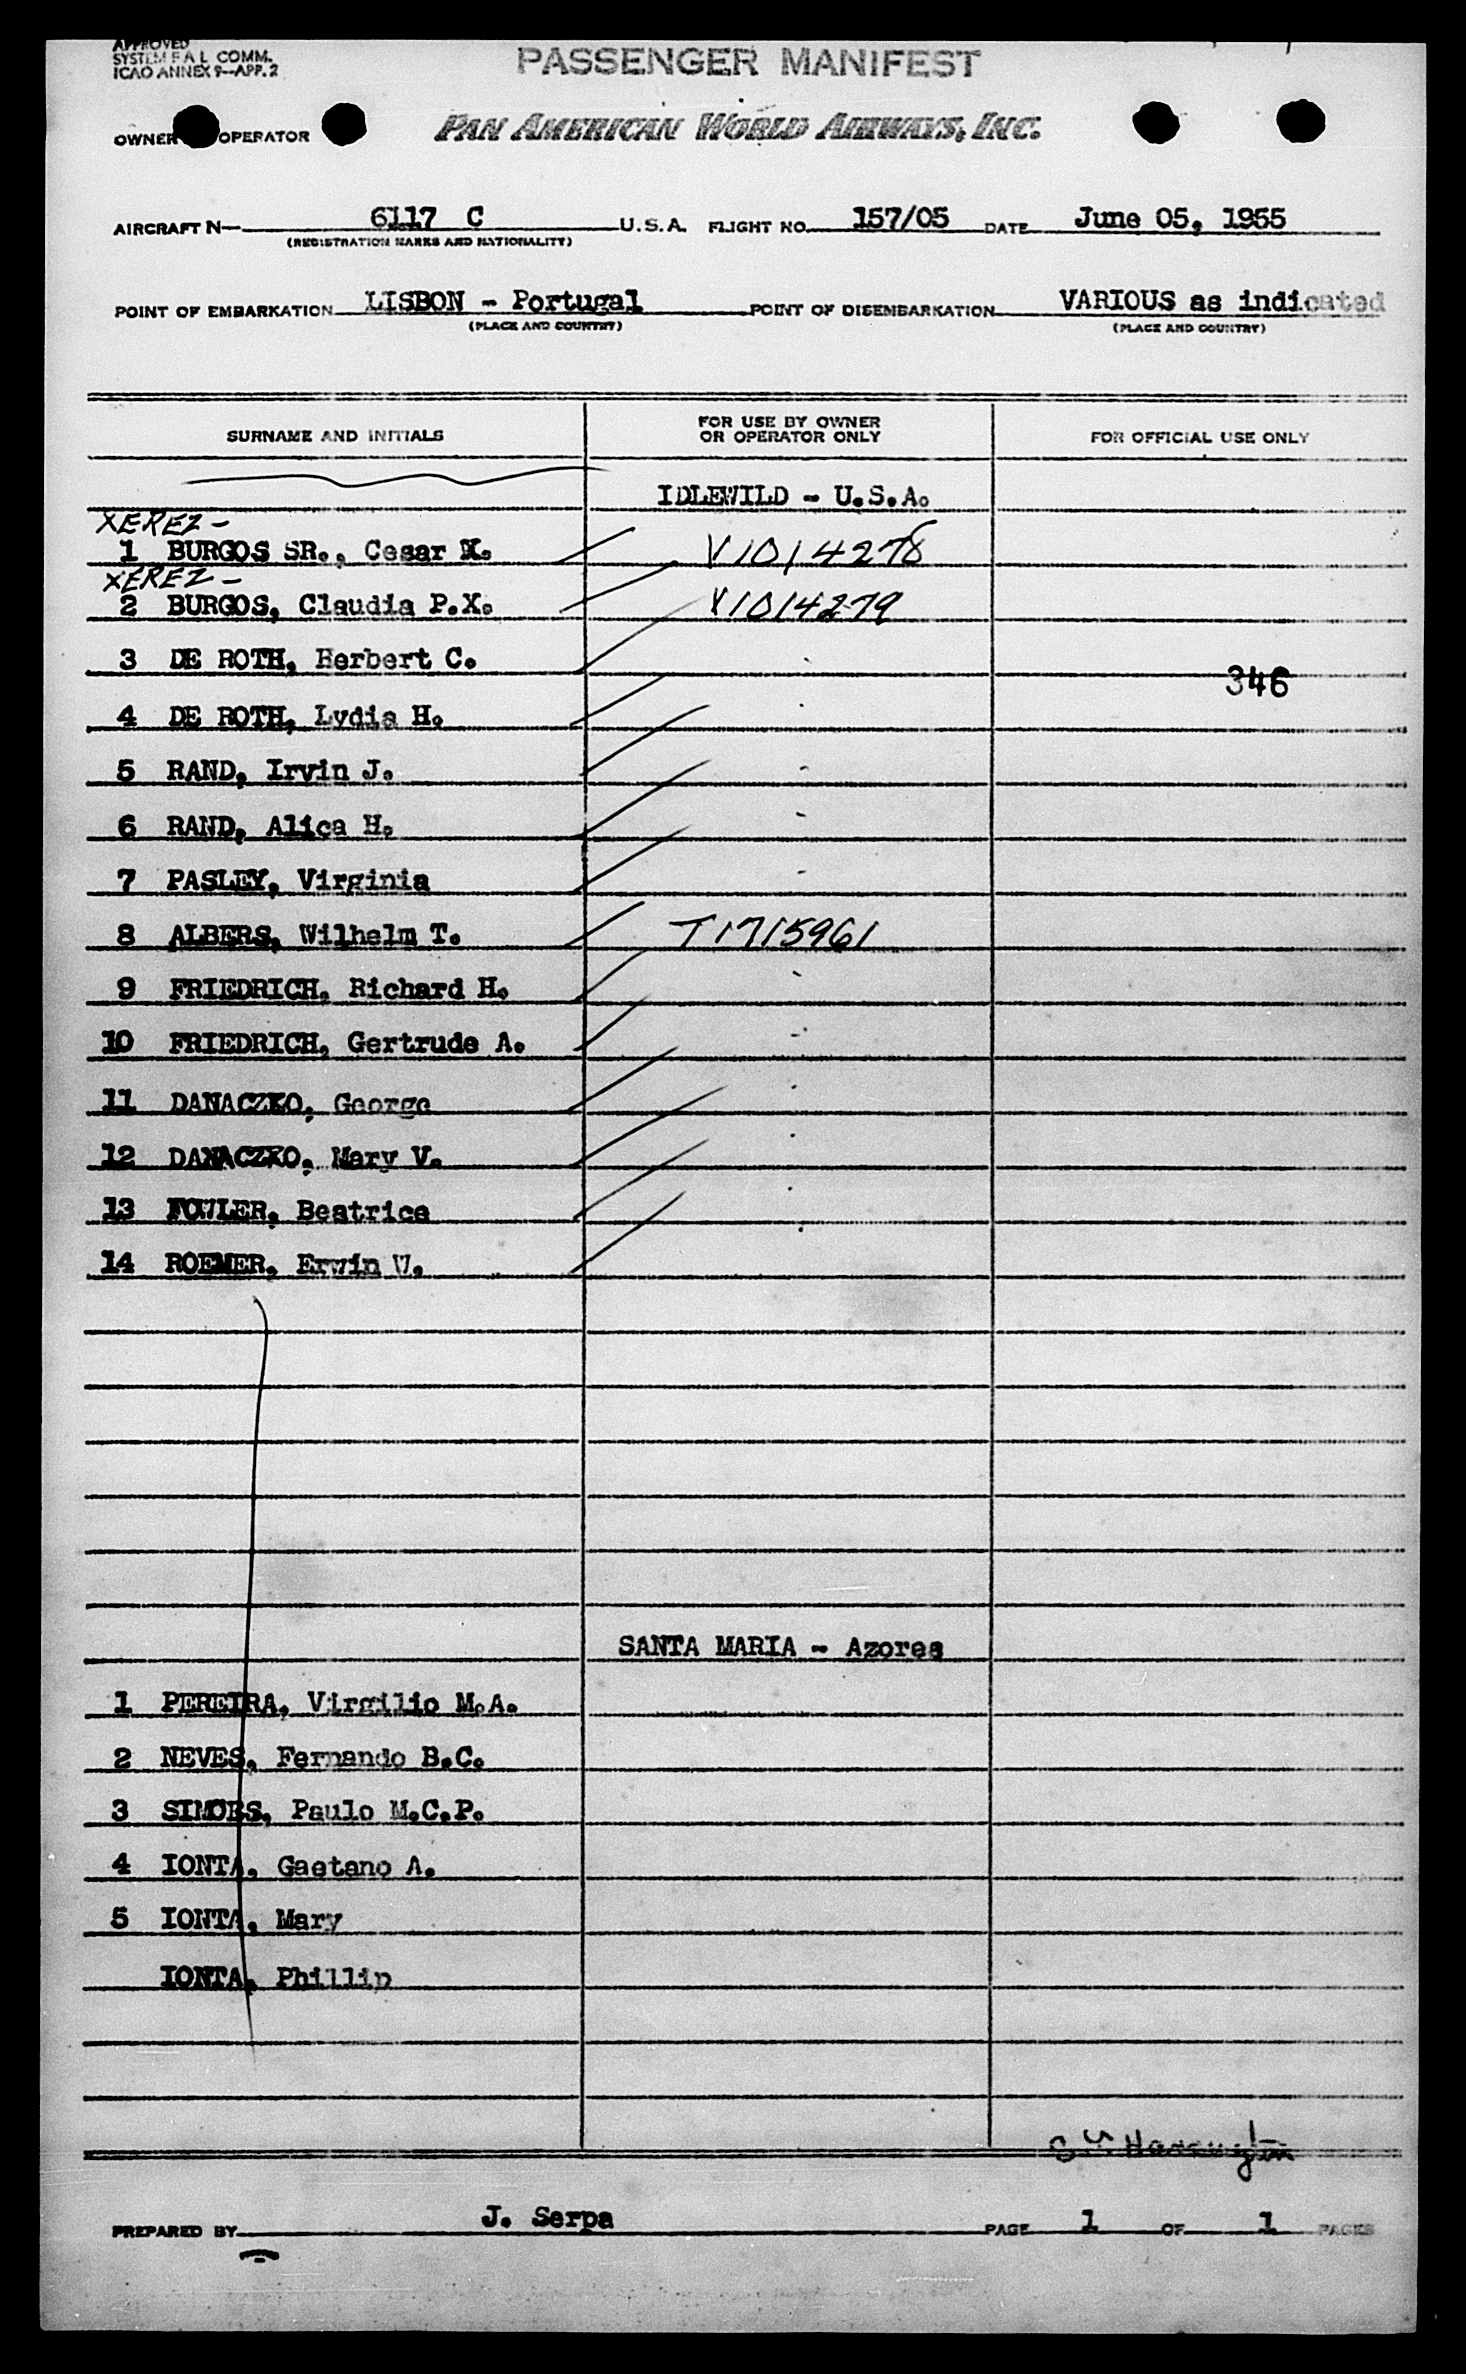 APPROVED
SYSTEM F A L COMM.
ICAO ANNEX 9—APP. 2
PASSENGER MANIFEST
OWNER OPERATOR
PAN AMERICAN WORLD AIRWAYS, INC.
AIRCRAFT N— 6117 C U.S.A. FLIGHT NO. 157/05 DATE June 05, 1955
(REGISTRATION MARKS AND NATIONALITY)
POINT OF EMBARKATION LISBON - Portugal POINT OF DISEMBARKATION VARIOUS as indicated
(PLACE AND COUNTRY) (PLACE AND COUNTRY)
SURNAME AND INITIALS FOR USE BY OWNER OR OPERATOR ONLY FOR OFFICIAL USE ONLY
IDLEWILD - U.S.A.
XEREZ-
1 BURGOS SR., Cesar X. V1014278
XEREZ-
2 BURGOS, Claudia P.X. V1014279
3 DE ROTH, Herbert C.
346
4 DE ROTH, Lydia H.
5 RAND, Irvin J.
6 RAND, Alica H.
7 PASLEY, Virginia
8 ALBERS, Wilhelm T. T1715961
9 FRIEDRICH, Richard H.
10 FRIEDRICH, Gertrude A.
11 DANACZKO, George
12 DANACZKO, Mary V.
13 FOWLER, Beatrice
14 ROEMER, Erwin W.
SANTA MARIA - Azores
1 PEREIRA, Virgilio M.A.
2 NEVES, Fernando B.C.
3 SIMOES, Paulo M.C.P.
4 IONTA, Gaetano A.
5 IONTA, Mary
IONTA, Phillip
PREPARED BY J. Serpa PAGE 1 OF 1 PAGES